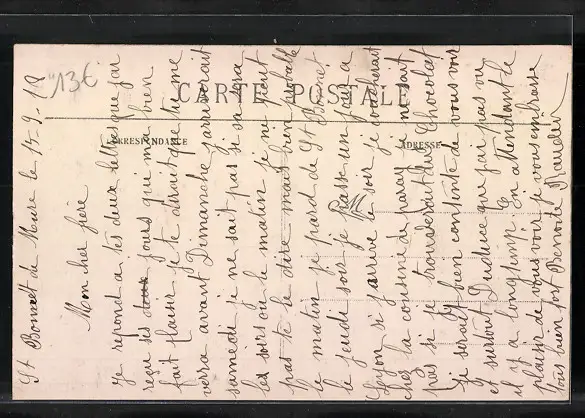 13€
CARTE POSTALE
CORRESPONDANCE
ADRESSE
St Bonnet de Mure le 15-9-12
Mon cher frère
Je repond a tes deux lettres que j'ai
reçu ses jours qui m'a bien
fait plaisir je te dirait que tu me
verra avant Dimanche j'arriverait
samedi je ne sait pas si sa sera
les soirs ou le matin je ne peut
pas te le dire mais bien probable
le matin je pard de St Bonnet
le jeudi soir je passe un jour a
Lyon si j'arrive le soir je coucherait
chez la cousine de paray je ne sait
pas si je trouverait du Chocolat
Je serait bien contente de vous voir
et surtout que j'ai pas vu
il y a longtemp. En attendant le
plaisir de vous voir je vous embrasse
tous bien fort Benoite